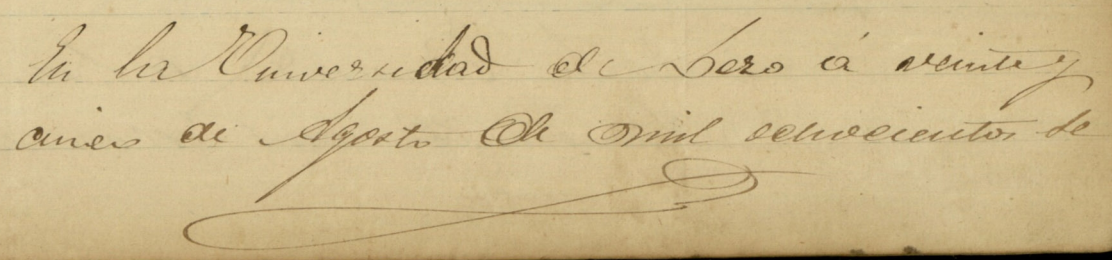 En la Universidad de Lezo á veinte y
cinco de Agosto de mil ochocientos se